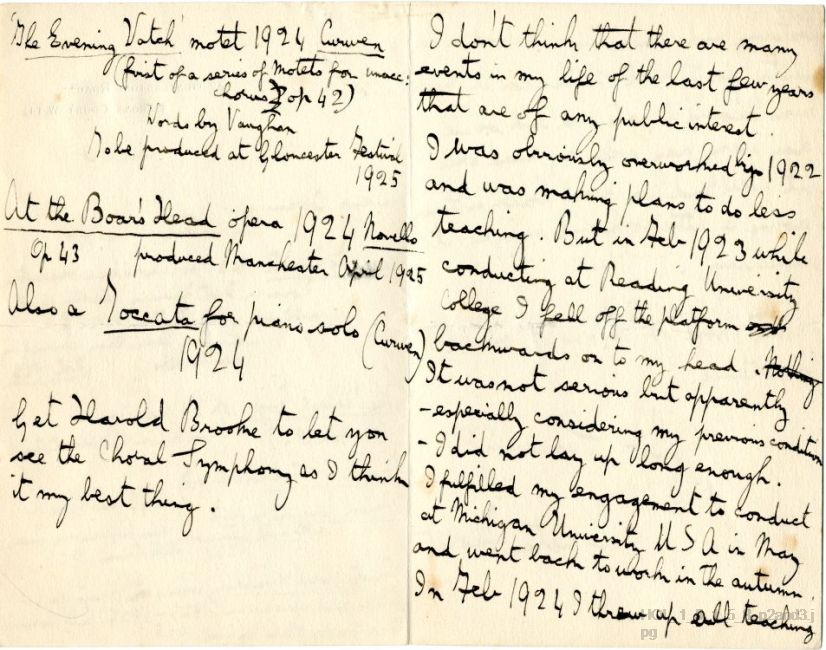 'The Evening Watch' motet 1924 Curwen
(first of a series of motets for unacc:
chorus op 42)
Words by Vaughan
To be produced at Gloucester Festival
1925
At the Boar's Head opera 1924 Novello
Op 43 produced Manchester April 1925
Also a Toccata for piano solo (Curwen)
1924
Get Harold Brooke to let you
see the Choral Symphony as I think
it my best thing.
I don't think that there are many
events in my life of the last few years
that are of any public interest.
I was obviously overworked by 1922
and was making plans to do less
teaching. But in Feb 1923 while
conducting at Reading University
College I fell off the platform
backwards on to my head. Nothing
It was not serious but apparently
- especially considering my previous condition
- I did not lay up long enough.
I fulfilled my engagement to conduct
at Michigan University USA in May
and went back to work in the autumn.
In Feb 1924 I threw up all teaching